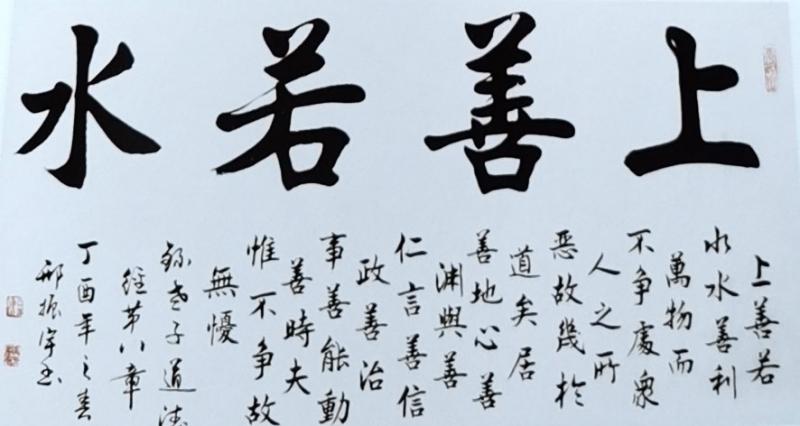 上善若水
上善若
水水善利
萬物而
不争處衆
人之所
恶故幾於
道矣居
善地心善
渊與善
仁言善信
政善治
事善能動
善時夫
惟不争故
無憂
錄老子道法
經第八章
丁酉年之春
邢振宇书